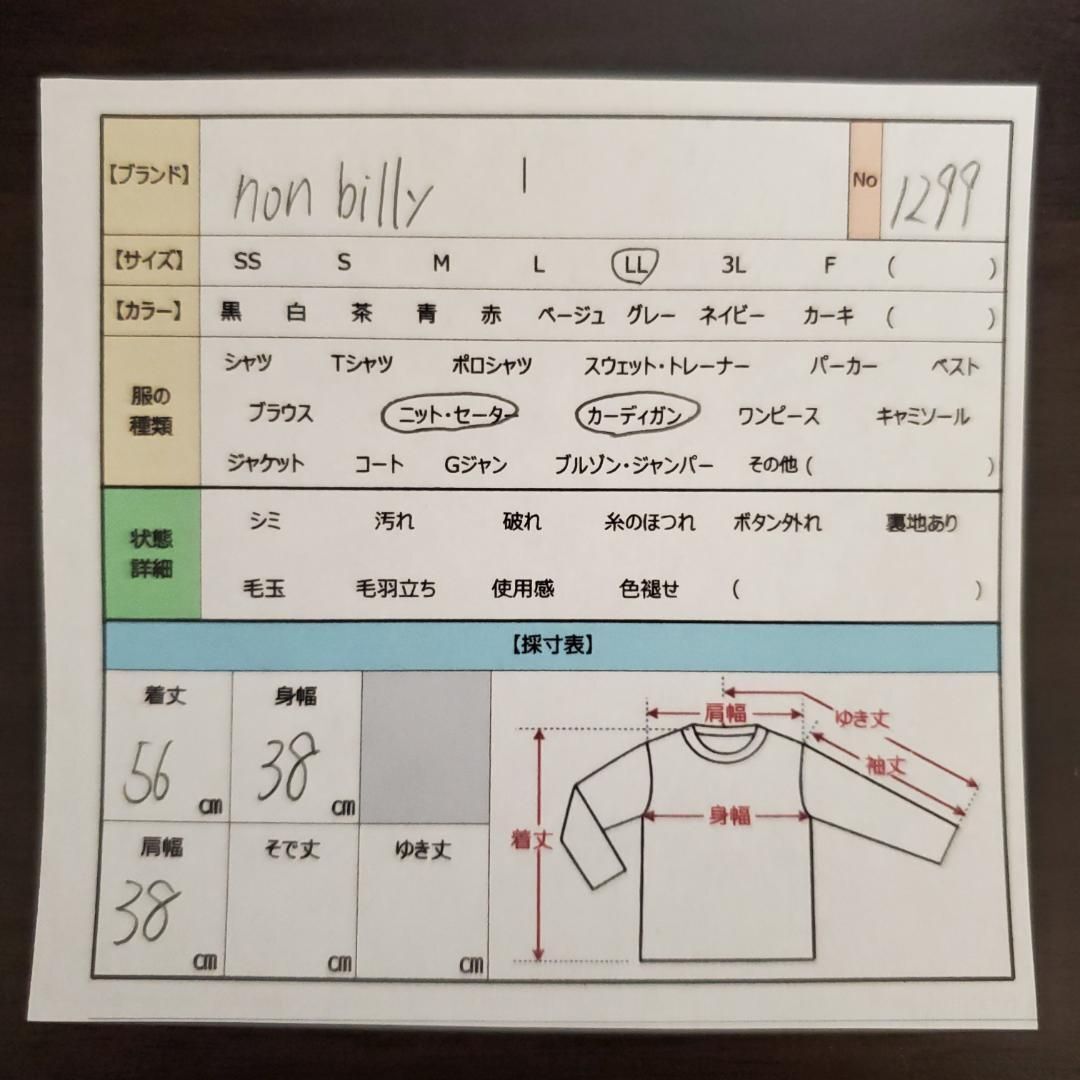 【ブランド】 non billy | No 1299
【サイズ】 SS S M L LL 3L F ( )
【カラー】 黒 白 茶 青 赤 ベージュ グレー ネイビー カーキ ( )
服の
種類
シャツ Tシャツ ポロシャツ スウェット・トレーナー パーカー ベスト
ブラウス ニット・セーター カーディガン ワンピース キャミソール
ジャケット コート Gジャン ブルゾン・ジャンパー その他 ( )
状態
詳細
シミ 汚れ 破れ 糸のほつれ ボタン外れ 裏地あり
毛玉 毛羽立ち 使用感 色褪せ ( )
【採寸表】
着丈 身幅
56 cm 38 cm
肩幅 そで丈 ゆき丈
38 cm cm cm
肩幅 ゆき丈
袖丈
身幅
着丈